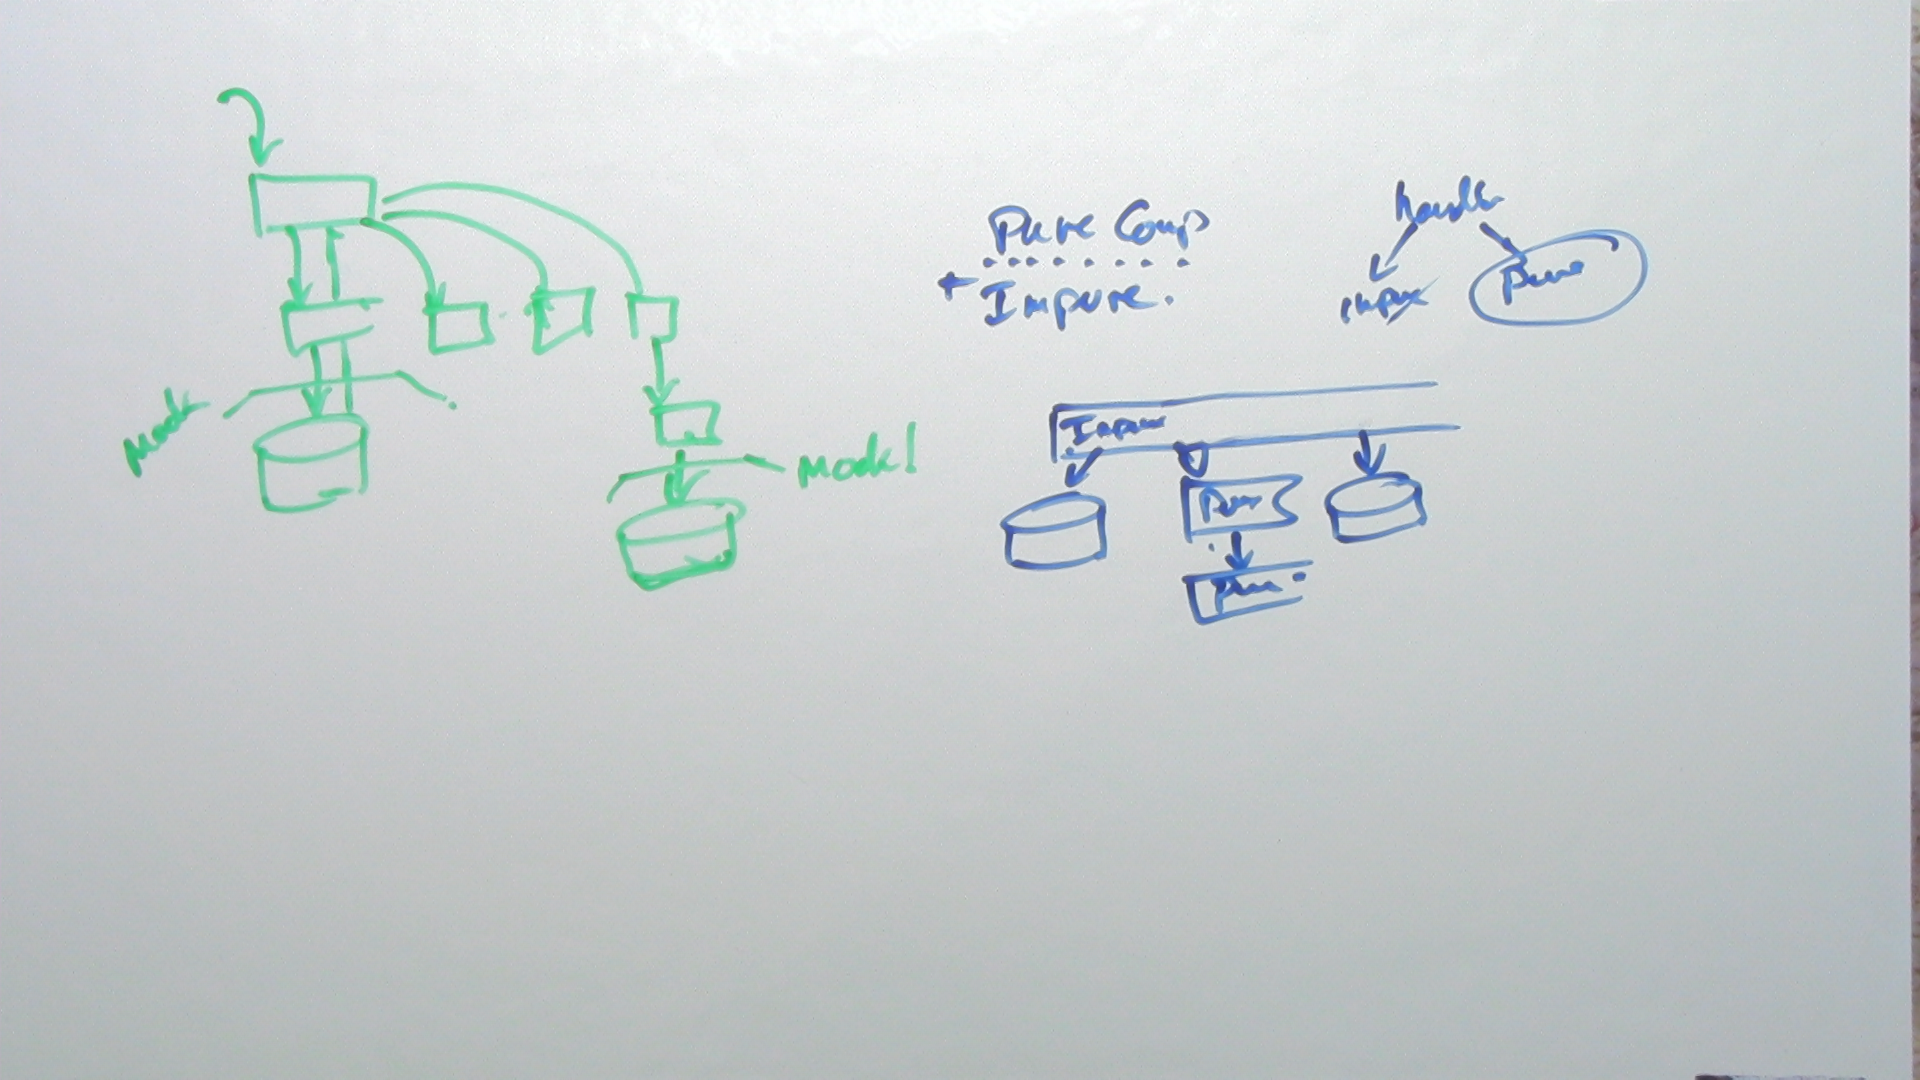 Mock
Mock!
Pure Comp
+ Impure.
handler
impure
Pure
Impure
Pure
Pure